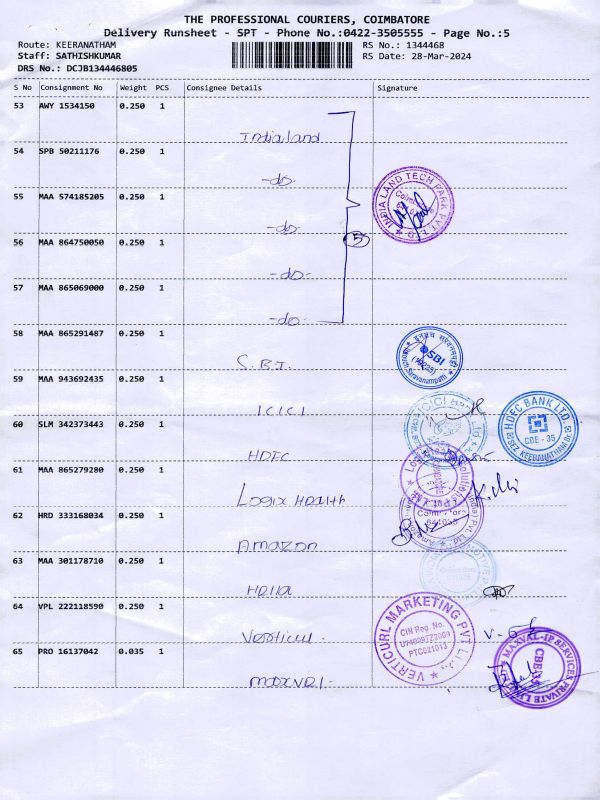 THE PROFESSIONAL COURIERS, COIMBATORE
Delivery Runsheet - SPT - Phone No.:0422-3505555 - Page No.:5
Route: KEERANATHAM
RS No.: 1344468
Staff: SATHISHKUMAR
RS Date: 28-Mar-2024
DRS No.: DCJB134446805
S No Consignment No Weight PCS Consignee Details Signature
53 AWY 1534150 0.250 1
Indialand
54 SPB 50211176 0.250 1
-do-
55 MAA 574185205 0.250 1
-do-
56 MAA 864750050 0.250 1
5
-do-
57 MAA 865069000 0.250 1
-do-
INDIA LAND TECH PARK PVT LTD
58 MAA 865291487 0.250 1
S.B.I.
SBI
59 MAA 943692435 0.250 1
ICICI
60 SLM 342373443 0.250 1
HDFC
HDFC BANK LTD
CBE - 35
61 MAA 865279280 0.250 1
Logix Health
62 HRD 333168034 0.250 1
Amazon
641035
63 MAA 301178710 0.250 1
Hella
64 VPL 222118590 0.250 1
Verticurl -
VERTICURL MARKETING PVT LTD
CIN Reg. No.
PTC021013
65 PRO 16137042 0.035 1
maxval-
MAXVAL-IP SERVICES PRIVATE LTD
CBE-35